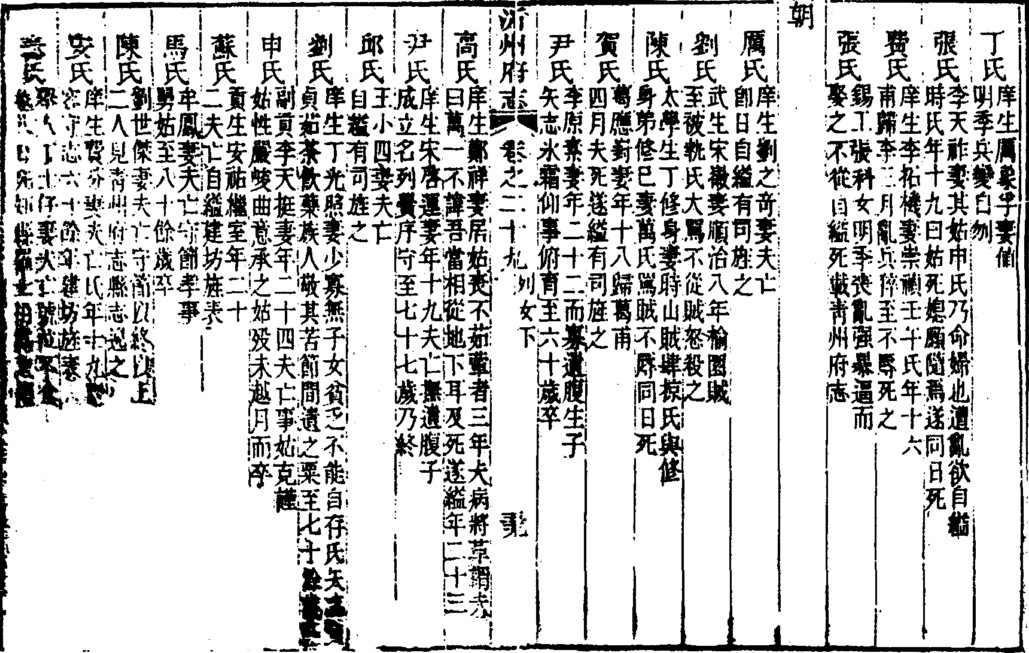 丁氏
庠生厲象宇妻值
明季兵變自刎
張氏
李天祚妻其姑申氏乃命婦也遭亂欲自縊
時氏年十九曰姑死媳願隨焉遂同日死
費氏
庠生李拓機妻崇禎壬午氏年十六
甫歸李三月亂兵猝至不辱死之
張氏
錫工張科女明季喪亂强暴逼而
娶之不從自縊死載靑州府志
朝
厲氏
庠生劉之奇妻夫亡
卽日自縊有司旌之
劉氏
武生宋徽妻順治八年榆園賊
至被執氏大罵不從賊怒殺之
陳氏
太學生丁修身妻時山賊肆掠氏與修
身弟修巳妻萬氏罵賊不辱同日死
賀氏
葛應對妻年十八歸葛甫
四月夫死遂縊有司旌之
尹氏
李原素妻年二十二而寡遺腹生子
矢志氷霜仰事俯育至六十歲卒
沂州府志
卷之二十九
列女下
高氏
庠生鄭祥妻居姑喪不茹葷者三年夫病將革謂夫
曰萬一不諱吾當相從地下耳及死遂縊年二十三
尹氏
庠生宋啓運妻年十九夫亡無遺腹子
成立名列黌序守至七十七歲乃終
邱氏
王小四妻夫亡
自縊有司旌之
劉氏
庠生丁光照妻少寡無子女貧乏不能自存氏矢
貞茹茶飮藥族人敬其苦節間遺之粟至七十餘
申氏
副貢李天挺妻年二十四夫亡事姑克謹
姑性嚴峻曲意承之姑歿未越月而卒
蘇氏
貢生安祐繼室年二十
二夫亡自縊建坊旌表
馬氏
牟鳳妻夫亡守節孝事
舅姑至八十餘歲卒
陳氏
劉世傑妻夫亡守節以終以上
二人見靑州府志縣志逸之
安氏
庠生費 妻夫亡氏年十九
守志六十餘年建坊旌表
氏